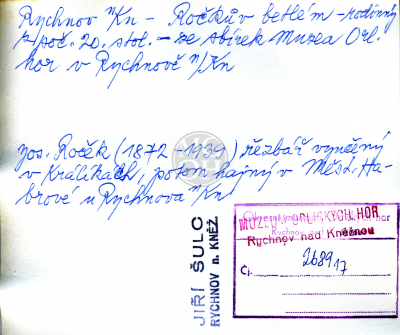 Rychnov n/Kn - Ročkův betlém - rodinný
z poč. 20. stol. - ze sbírek Muzea Orl.
hor v Rychnově n/Kn
Jos. Roček (1872 - 1939) řezbář vyučený
v Králíkách, potom hajný v Měst. Ha-
brové u Rychnova n/Kn
JIŘÍ ŠULC
RYCHNOV n. KNĚŽ.
MUZEUM ORLICKÝCH HOR
Rychnov nad Kněžnou
Čj.